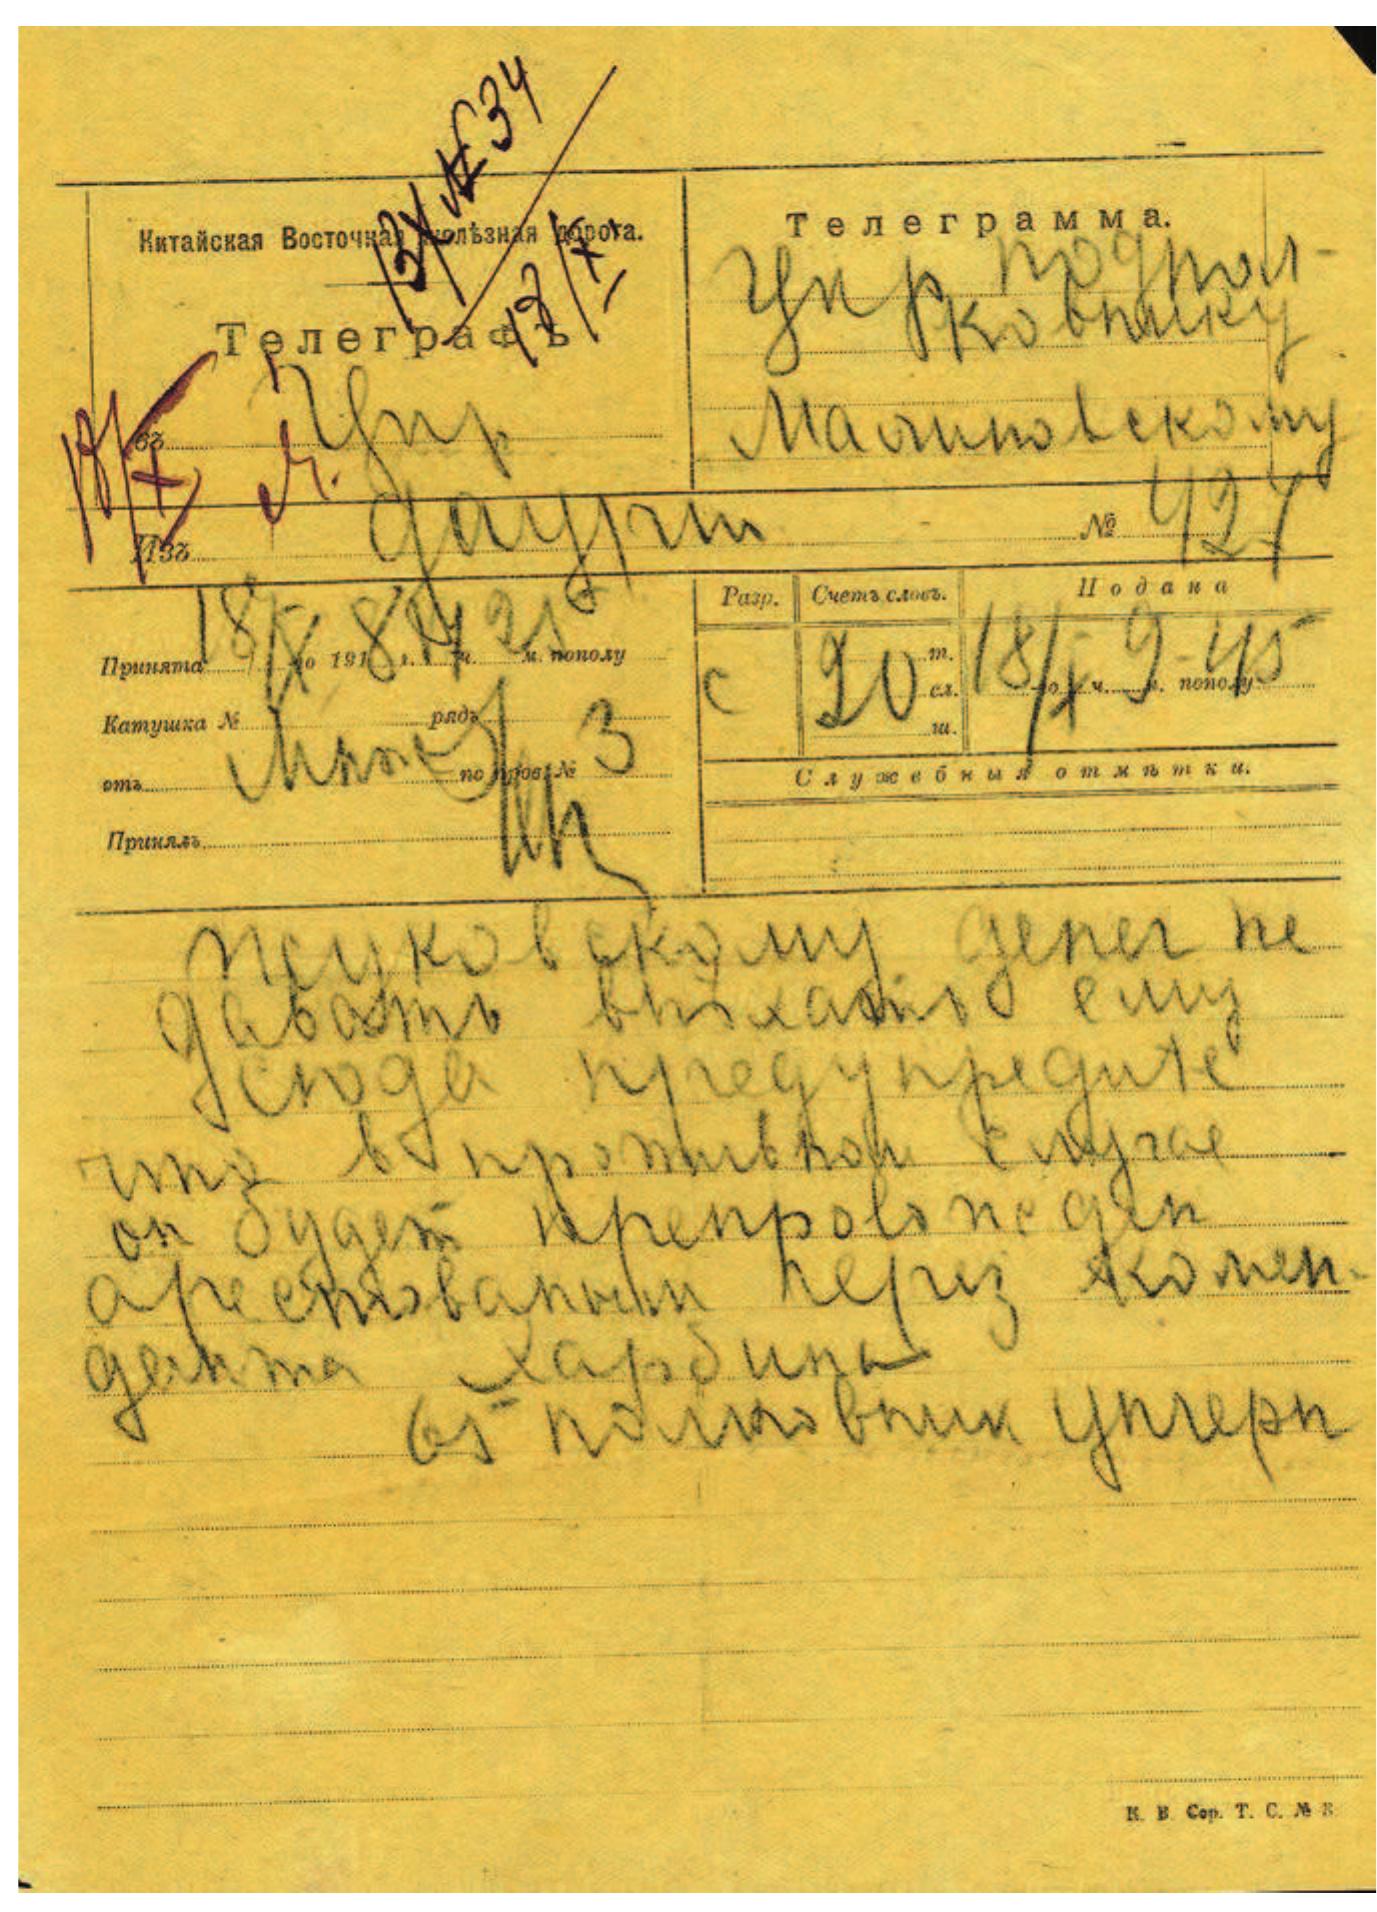 124 № 34
12/X
Китайская Восточная желѣзная дорога.
Телеграфъ
въ Цпр
18/X
Телеграмма.
Цпр подпол-
ковнику
Малиновскому
Изъ Даурии № 427
Принята 18/X го 191 г. ч. м. пополу
Катушка № рядъ
отъ по пров. № 3
Принялъ
Разр. Счетъ словъ. Подана
с 20 т. сл. ш. 18/X го ч. 9-45 м. пополу
Служебныя отмѣтки.
Жуковскому денег не
давать выехать ему
сюда предупредите
что в противном случае
он будет препровожден
арестованным через комен-
данта Харбина
65 полковник Унгерн
К. В. Сер. Т. С. №